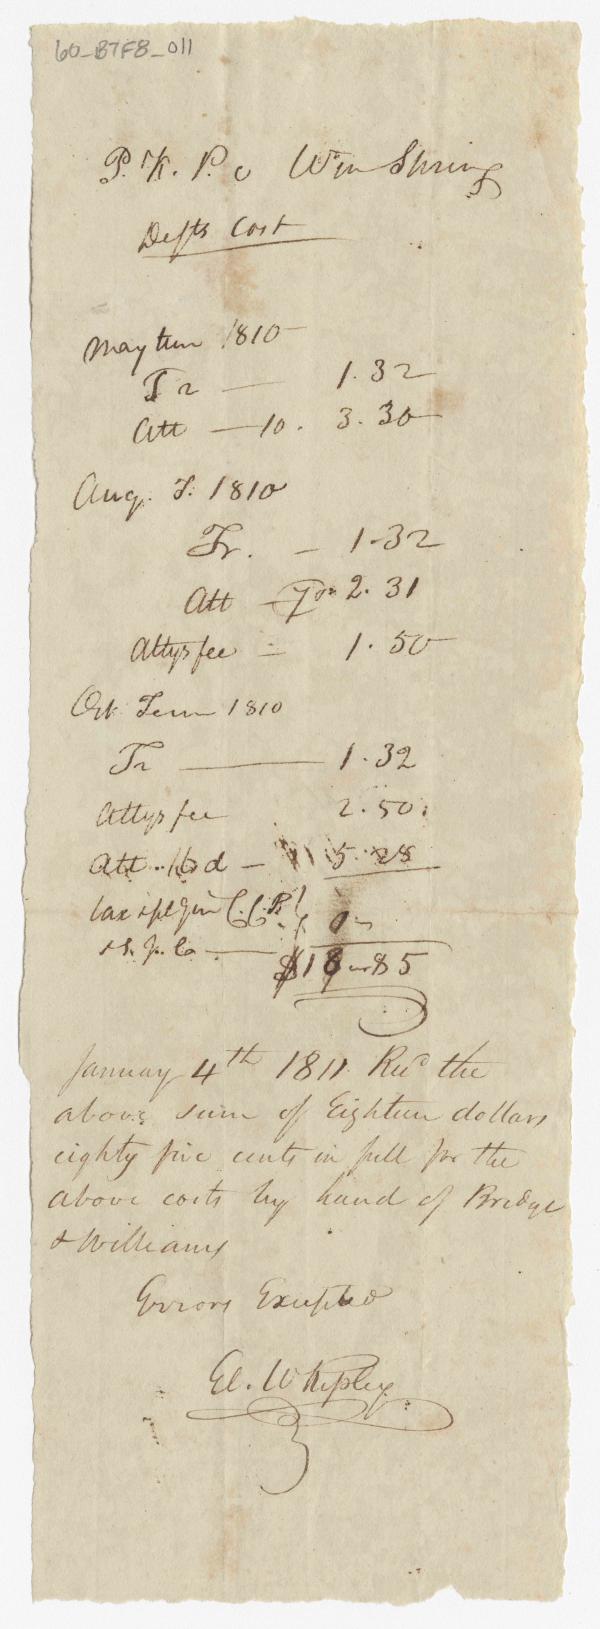 60_B7F8_011
P. K. P. v Wm Spring
Defts Cost
May term 1810
Tr — 1.32
Att — 10. 3.30
Aug. T. 1810
Tr. — 1.32
Att — 7 2.31
Attys fee — 1.50
Oct Term 1810
Tr — 1.32
Attys fee 2.50
Att. 16 d — 5.28
tax
$18-85
January 4th 1811 Recd the
above sum of Eighteen dollars
eighty five cents in full for the
above costs by hand of Bridge
& Williams
Errors Excepted
El. W Ripley